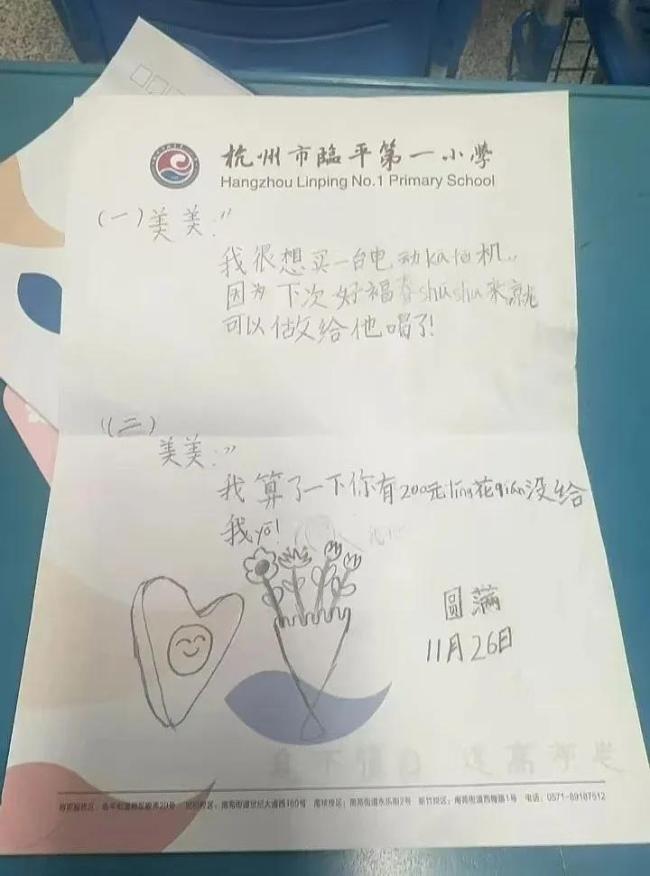 杭州市臨平第一小學
Hangzhou Linping No.1 Primary School
(一)美美:"
我很想买一台电动ka fei机,,
因为下次好福春shúshu来就
可以做给他喝了!
"(二)
美美:"
我算了一下你有200元líng花qián没给
我yo!
圆满
11月26日
电话:0571-89187512